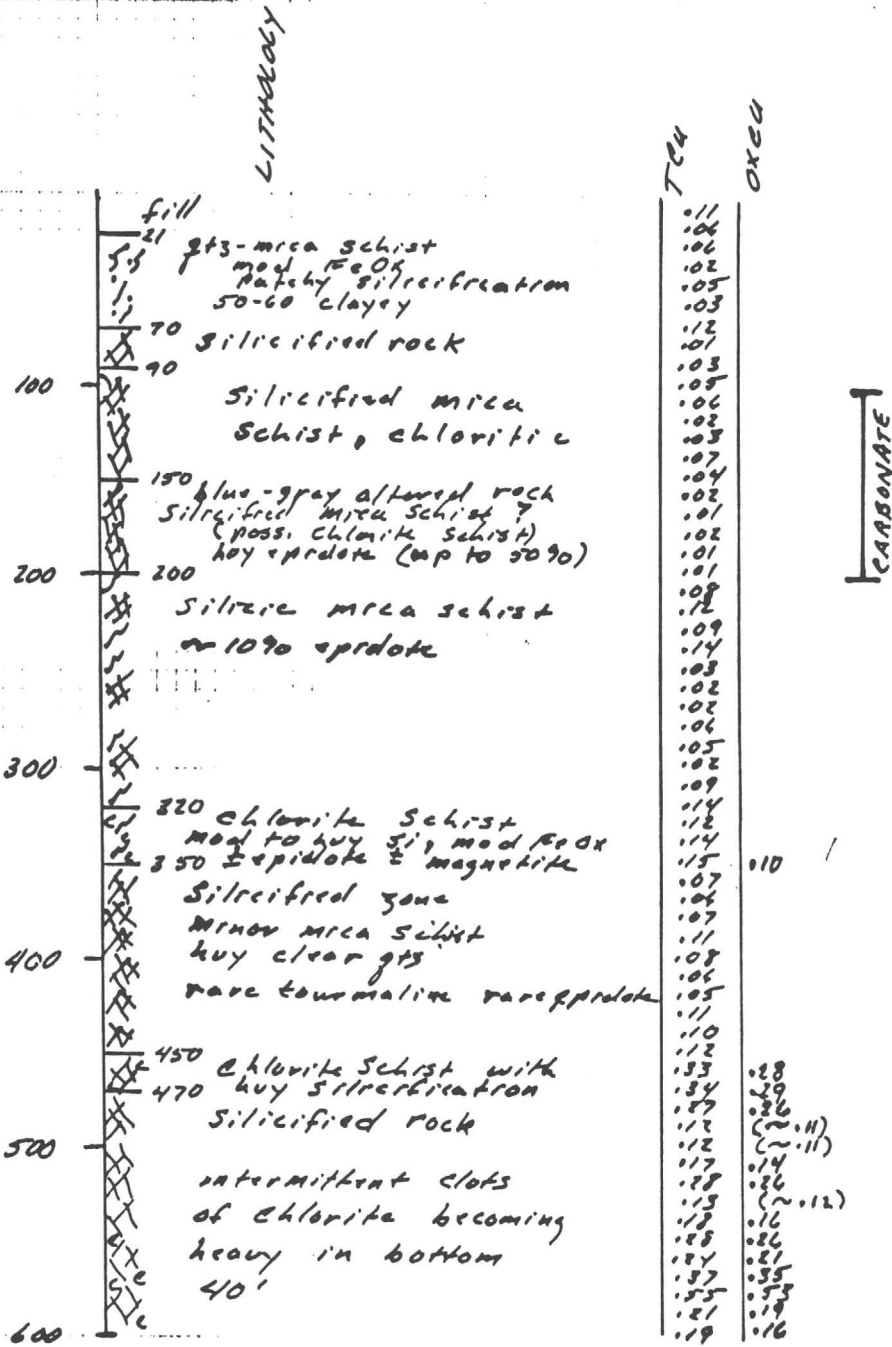 LITHOLOGY
TCu
OXCu
fill
21
qtz-mica schist
mod FeOx
Patchy silicification
50-60 clayey
70
silicified rock
90
100
Silicified mica
Schist, chloritic
150
blue-gray altered rock
Silicified mica schist ?
(poss. chlorite schist)
hvy epidote (up to 50%)
200
200
Silicic mica schist
~ 10% epidote
300
320
Chlorite Schist
mod to hvy Si, mod FeOx
350 ± epidote ± magnetite
Silicified zone
Minor mica schist
hvy clear qtz
400
rare tourmaline rare epidote
450
Chlorite Schist with
470
hvy silicification
Silicified rock
500
intermittent clots
of chlorite becoming
heavy in bottom
40'
600
.11
.06
.06
.02
.05
.03
.12
.01
.03
.05
.06
.02
.03
.07
.04
.02
.01
.02
.01
.01
.08
.12
.09
.14
.03
.02
.02
.06
.05
.02
.09
.14
.12
.14
.15 .10
.07
.06
.07
.11
.08
.06
.05
.11
.10
.12
.33 .28
.34 .29
.27 .26
.12 (~.11)
.12 (~.11)
.17 .14
.28 .26
.13 (~.12)
.18 .16
.28 .26
.24 .21
.37 .35
.55 .53
.21 .19
.19 .16
CARBONATE